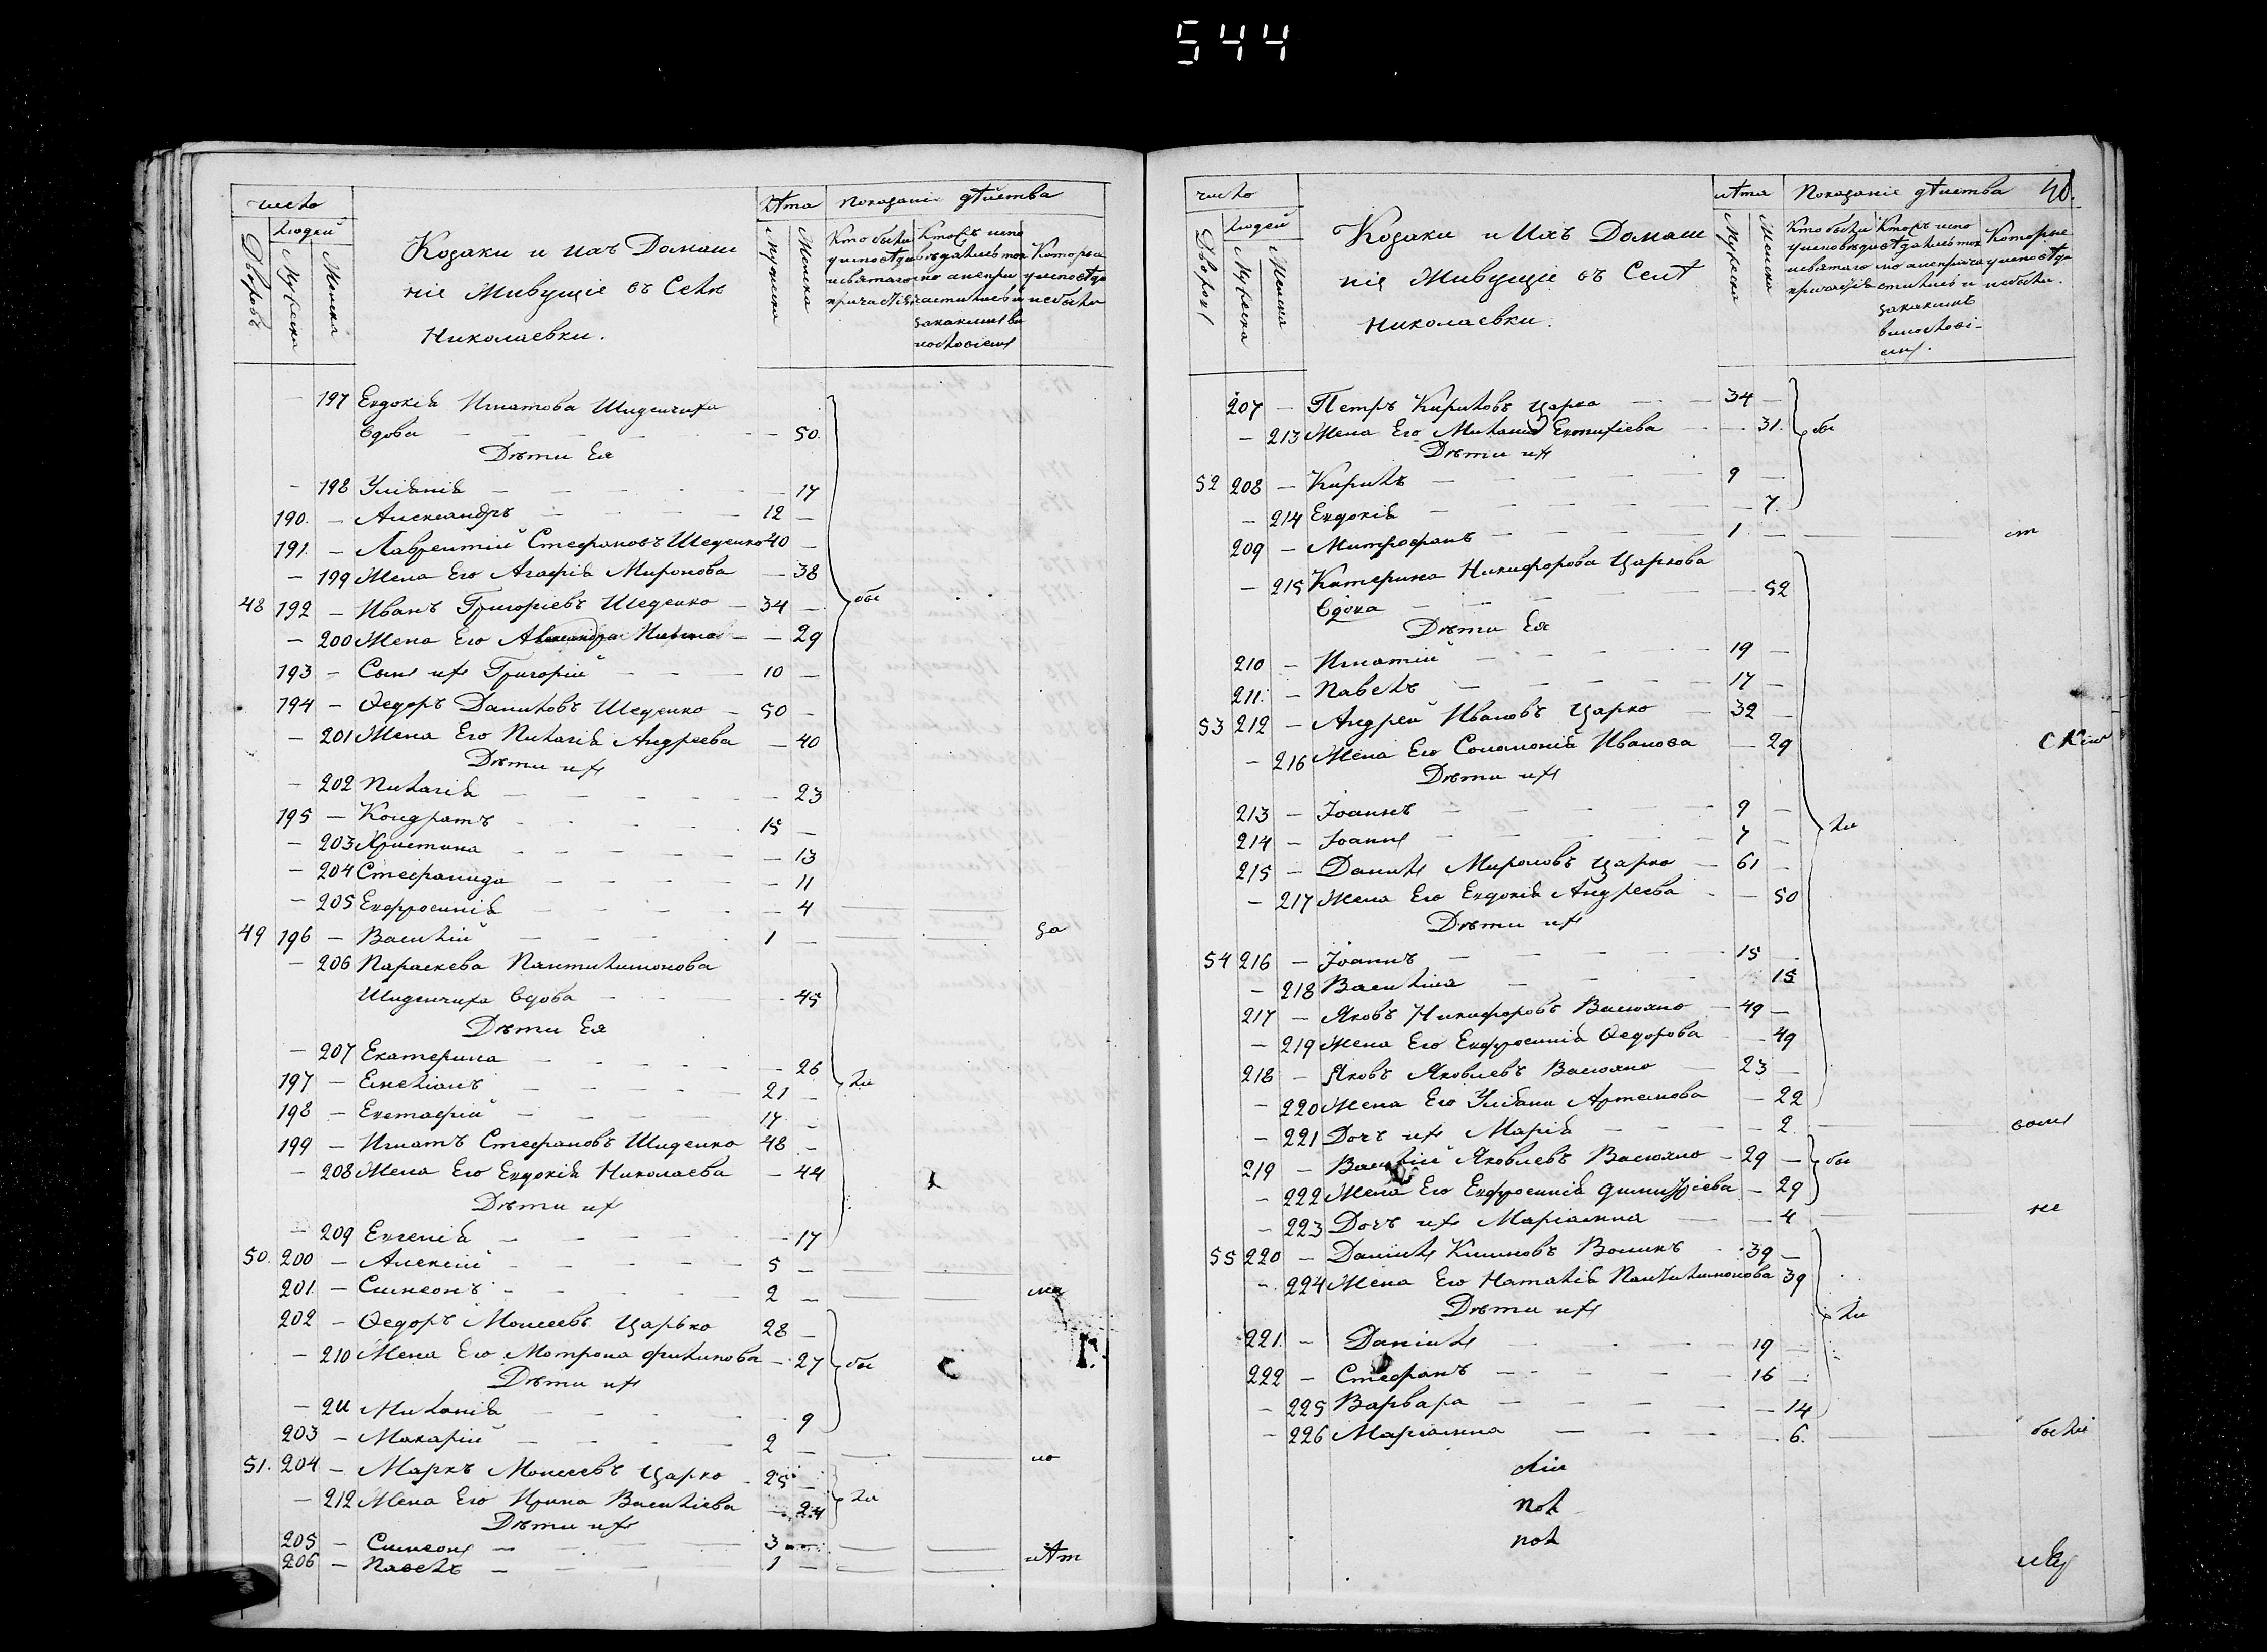 544
число
Людей
Дворовъ
Мужеска
Женска
Козаки и ихъ Домаш
ніе Живущіе въ Селѣ
Николаевки.
Лѣта
Мужеска
Женска
Показаніе дѣйства
Кто были
у исповѣди
и святаго
причастія
Которые
у исповѣди
не были
197 Евдокія Игнатова Шиденчиха
вдова — 50.
Дѣти Ея
— 198 Уліянія — 17
190. — Александръ — 12 —
191. — Лаврентій Стефановъ Шеденко 40 —
— 199 Жена Его Агафія Миронова — 38
48 192 — Иванъ Григоріевъ Шеденко — 34 — бы
— 200 Жена Его Александра — 29
193 — Сынъ ихъ Григорій — 10 —
194 — Ѳедоръ Даниловъ Шеденко — 50 —
— 201 Жена Его Пелагія Андреева — 40
Дѣти ихъ
— 202 Пелагія — 23
195 — Кондратъ — 15 —
— 203 Христина — 13
— 204 Стефанида — 11
— 205 Евфросинія — 4
49 196 — Василій — 1 — за
— 206 Параскева Пантилимонова
Шиденчиха вдова — 45
Дѣти Ея
— 207 Екатерина — 26
197 — Емеліанъ — 21 — ли
198 — Евстафій — 17 —
199 — Игнатъ Стефановъ Шиденко 48 —
— 208 Жена Его Евдокія Николаева — 44
Дѣти их
— 209 Евгенія — 17
50. 200 — Алексій — 5 —
201. — Симеонъ — 2 —
202 — Ѳедоръ Моисеевъ Царько 28 —
— 210 Жена Его Мотрона Филипова — 27 бы
Дѣти ихъ
— 211 Миланія — 9
203 — Макарій — 2 — но
51. 204 — Маркъ Моисеевъ Царко — 25 —
— 212 Жена Его Ирина Василіева — 24 ли
Дѣти ихъ
205 — Симеонъ — 3 —
206 — Павелъ — 1 — лѣт
40.
число
Людей
Дворовъ
Мужеска
Женска
Козаки и Ихъ Домаш
ніе Живущіе въ Селѣ
Николаевки.
лѣта
Мужеска
Женска
Показаніе дѣйства
Кто были
у исповѣди
и святаго
причастія
Которые
у исповѣди
не были.
207 — Петръ Кириловъ Царко — 34 —
— 213 Жена Его Миланія — 31. бы
Дѣти ихъ
52 208 — Кирилъ — 9 —
— 214 Евдокія — 7.
209 — Митрофанъ — 1 — ст
— 215 Катерина Никифорова Царкова
вдова — 52
Дѣти Ея
210 — Игнатій — 19 —
211. — Павелъ — 17 —
53 212 — Андрей Ивановъ Царко — 32 —
— 216 Жена Его Соломонія Иванова — 29
Дѣти ихъ
213 — Іоаннъ — 9 —
214 — Іоаннъ — 7 — ли
215 — Данилъ Мироновъ Царко — 61 —
— 217 Жена Его Евдокія Андреева — 50
Дѣти их
54 216 — Іоаннъ — 15 —
— 218 Василиса — 15
217 — Яковъ Никифоровъ Васюхно — 49 —
— 219 Жена Его Евфросинія Ѳедорова — 49
218 — Яковъ Яковлевъ Васюхно — 23 —
— 220 Жена Его Уліяни Артемова — 22
— 221 Дочь ихъ Марія — 2.
219 — Василій Яковлевъ Васюхно — 29 — бы
— 222 Жена Его Евфросинія Димитріева — 29
— 223 Дочь ихъ Маріамна — 4 не
55 220 — Даніилъ Климовъ Вошикъ — 39 —
— 224 Жена Его Наталія Пантилимонова 39
Дѣти ихъ ли
221. — Даніилъ — 19 —
222 — Стефанъ — 16 —
— 225 Варвара — 14
— 226 Маріамна — 6. были